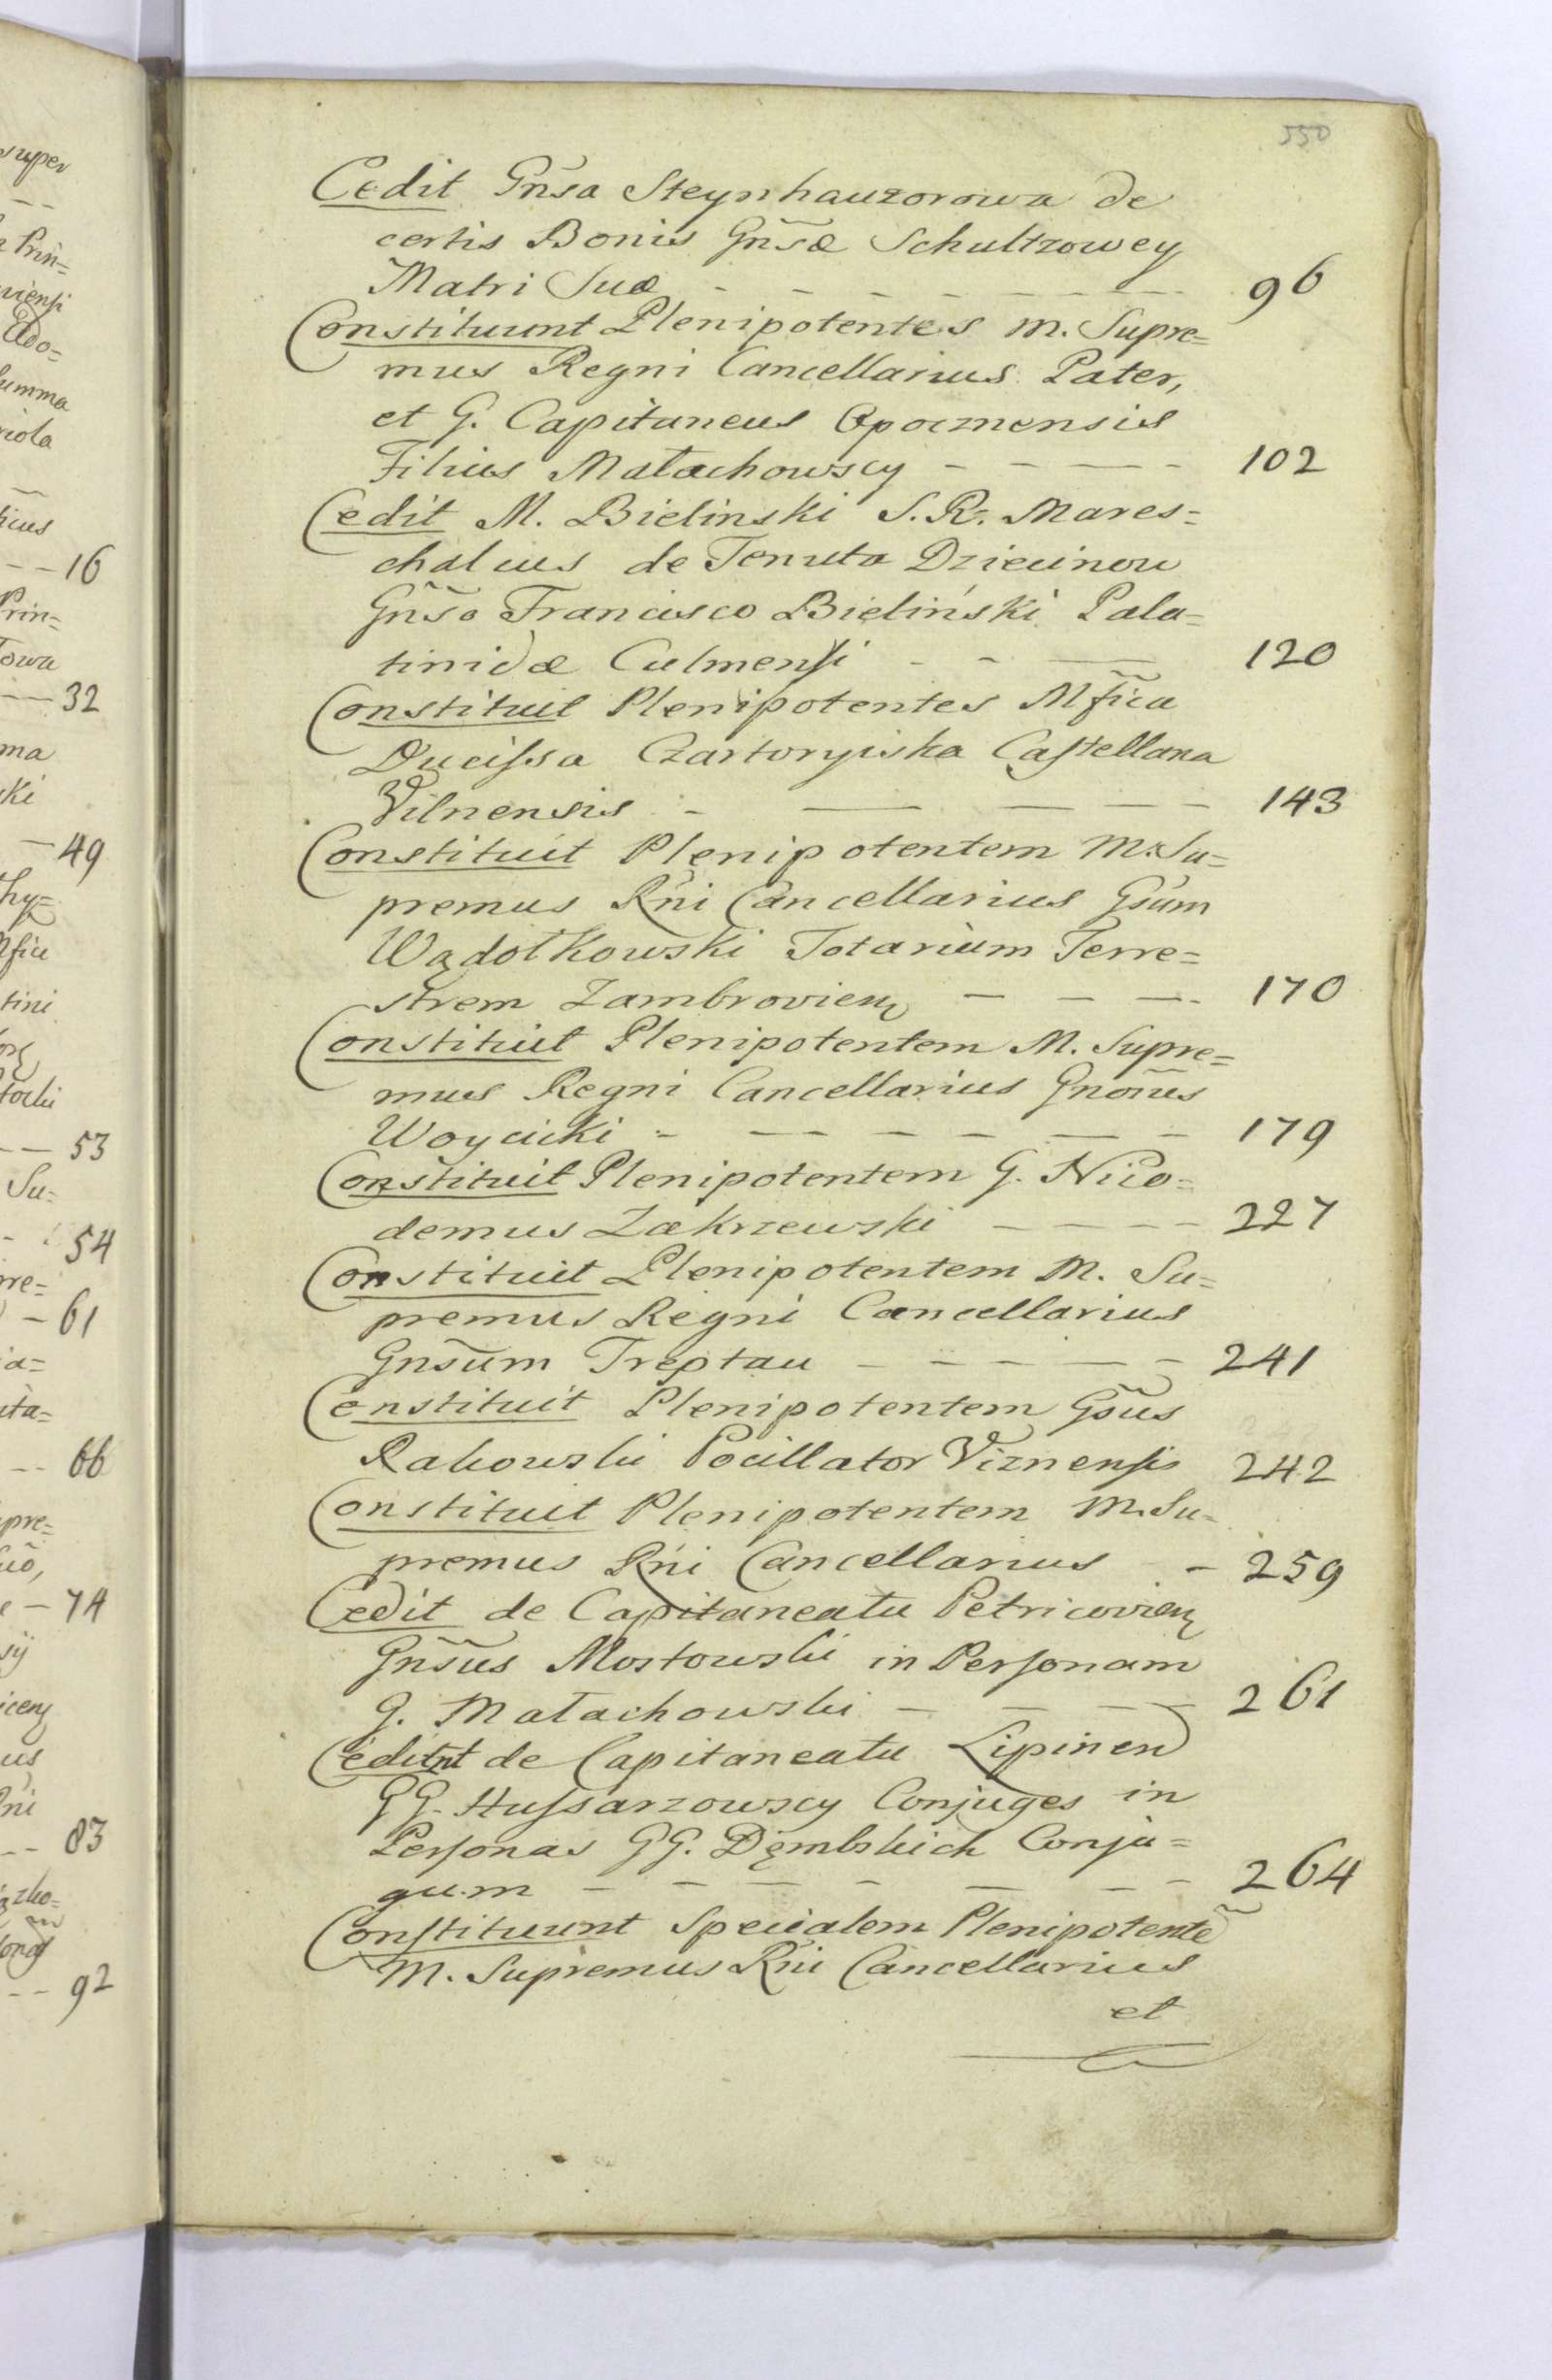 super
Prin=
viensi
Ado=
summa
16
Prin=
32
ma
ski
49
53
Su=
54
61
66
74
83
92
550
Cedit Gnsa Steynhauzorowa de
certis Bonis Gñsæ Schultzowey
Matri Suæ - - - - - - - 96
Constituunt Plenipotentes M. Supre=
mus Regni Cancellarius Pater,
et G. Capitaneus Opocznensis
Filius Małachowscy - - - - 102
Cedit M. Bielinski S. R. Mares=
chalcus de Tenuta Dziecinow
Gñso Francisco Bieliński Pala=
tinidæ Culmensi - - - 120
Constituit Plenipotentes Mfica
Ducissa Czartoryiska Castellana
Vilnensis - - - - - 143
Constituit Plenipotentem M. Su=
premus Rni Cancellarius Gsum
Wądołkowski Notarium Terre=
strem Zambrovien - - - 170
Constituit Plenipotentem M. Supre=
mus Regni Cancellarius Gnosus
Woycicki - - - - - - 179
Constituit Plenipotentem G. Nico=
demus Zakrzewski - - - - 227
Constituit Plenipotentem M. Su=
premus Regni Cancellarius
Gnsum Treptau - - - - - 241
Constituit Plenipotentem Gsus
Rakowski Pocillator Viznensis 242
Constituit Plenipotentem M. Su=
premus Rni Cancellarius - 259
Cedit de Capitaneatu Petricovien
Gnsus Mostowski in Personam
G. Małachowski - - - - 261
Cedunt de Capitaneatu Lipinen
GG. Hussarzowscy Conjuges in
Personas GG. Dęmbskich Conju=
gum - - - - - - - 264
Constituunt Specialem Plenipotente͂
M. Supremus Rni Cancellarius
et